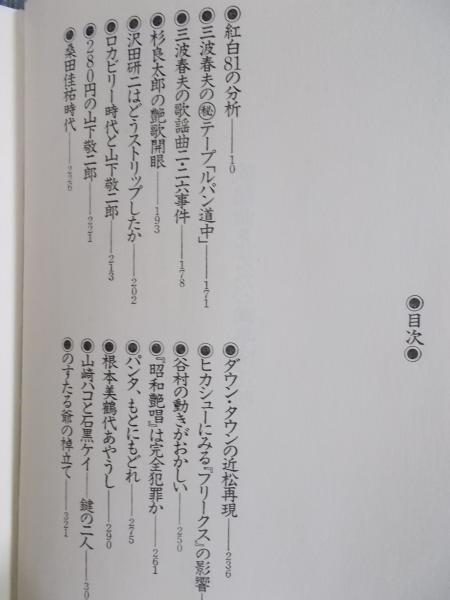 ◉目次◉
◉紅白81の分析——10
◉三波春夫の㊙テープ「ルパン道中」——171
◉三波春夫の歌謡曲二・二六事件——178
◉杉良太郎の艶歌開眼——193
◉沢田研二はどうストリップしたか——202
◉ロカビリー時代と山下敬二郎——213
◉280円の山下敬二郎——221
◉桑田佳祐時代——226
◉ダウン・タウンの近松再現——236
◉ヒカシューにみる『フリークス』の影響—
◉谷村の動きがおかしい——250
◉『昭和艶唱』は完全犯罪か——261
◉パンタ、もとにもどれ——275
◉根本美鶴代あやうし——290
◉山崎ハコと石黒ケイ——鍵の二人——30
◉のすたる爺の棹立て——321